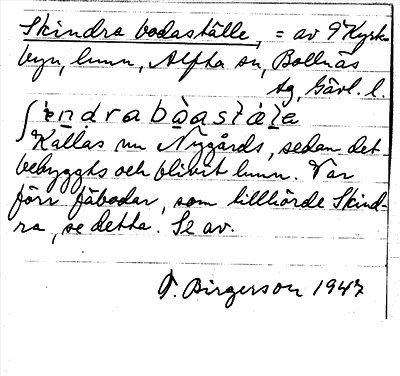 Skindra bodaställe, = av 9 Kyrk-
byn, hmn, Alfta sn, Bollnäs
tg, Gävl. l.
Kallas nu Nygårds, sedan det
bebyggts och blivit hmn. Var
förr fäbodar, som tillhörde Skind-
ra, se detta. Se av.
F. Birgerson 1947